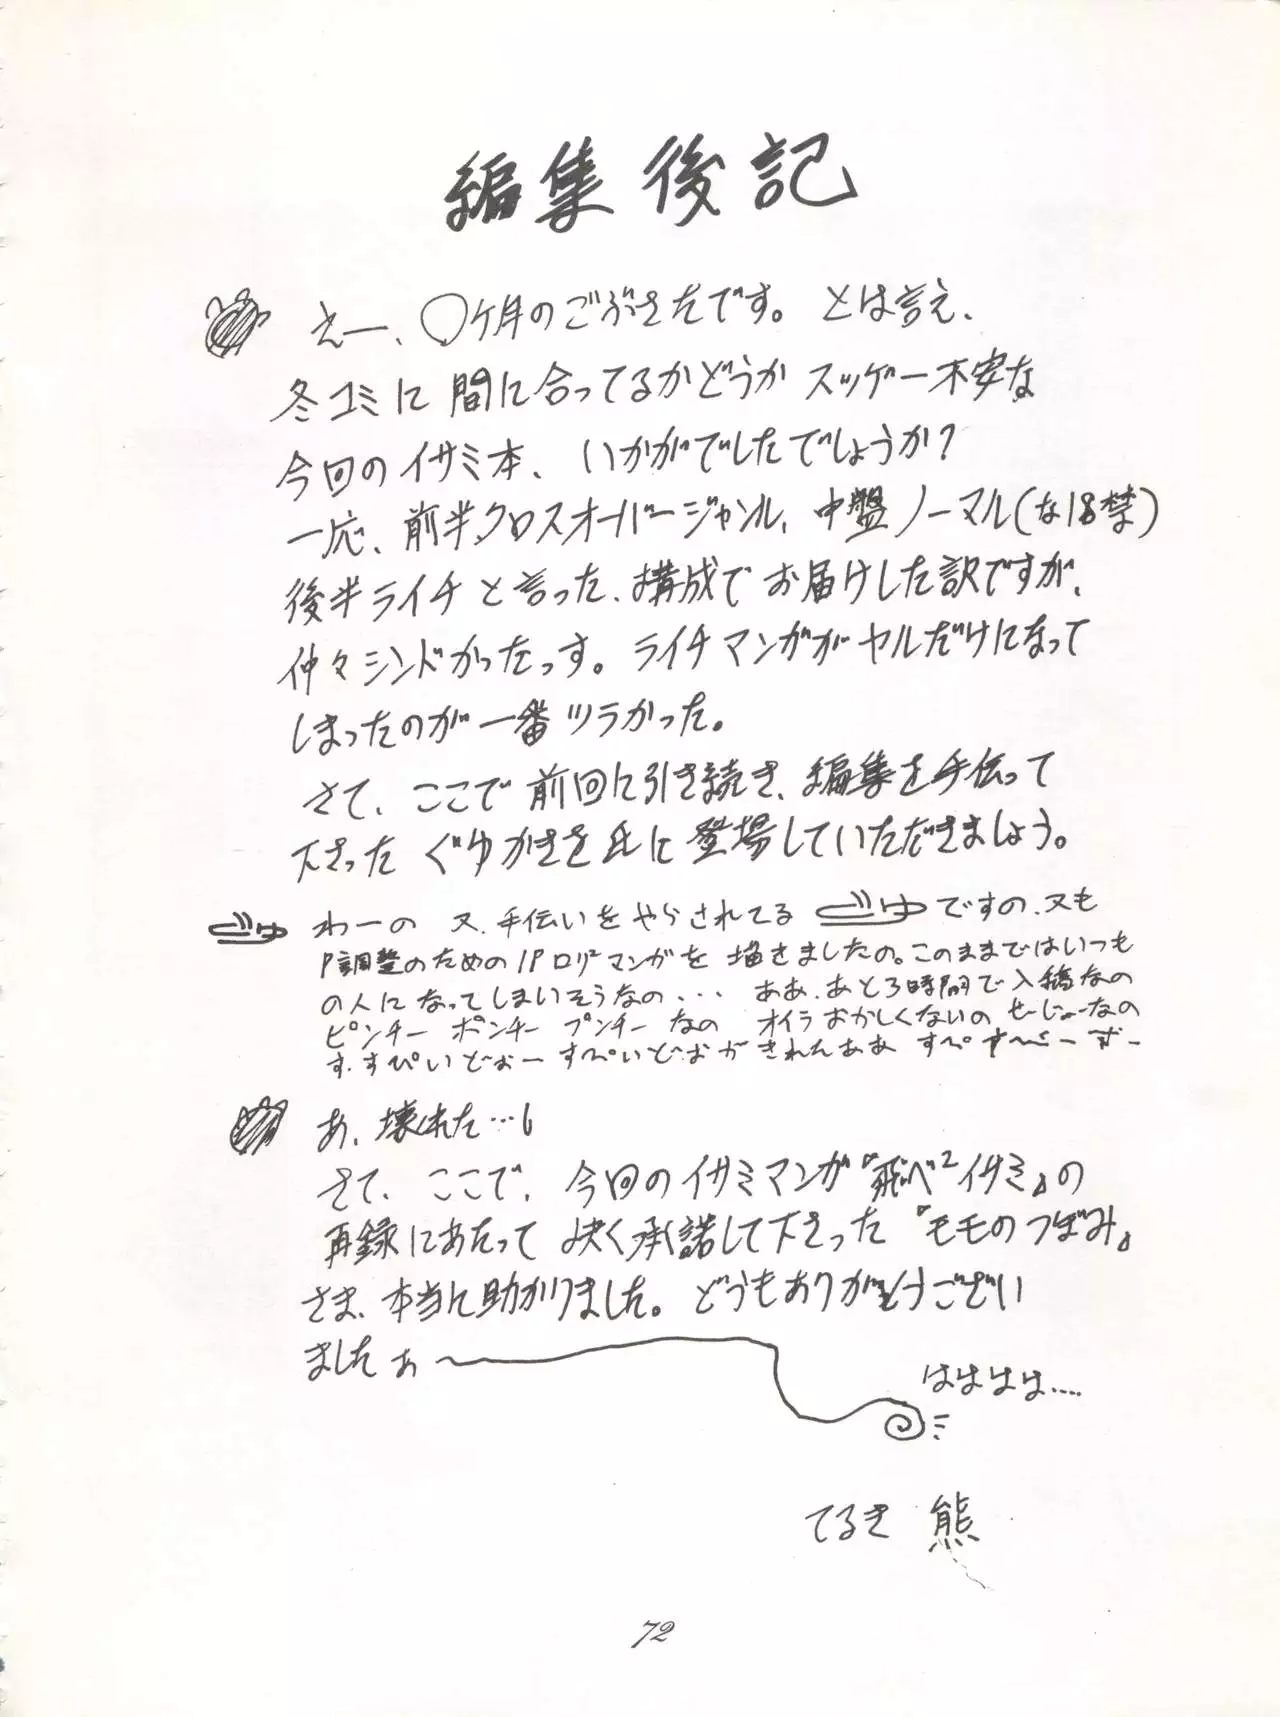 編集後記
えー、○ヶ月のごぶさたです。とは言え、
冬コミに間に合ってるかどうかスッゲー不安な
今回のイサミ本、いかがでしたでしょうか?
一応、前半クロスオーバージャンル、中盤ノーマル(な18禁)
後半ライチと言った、構成でお届けした訳ですが、
仲々シンドかったっす。ライチマンガがヤルだけになって
しまったのが一番ツラかった。
さて、ここで前回に引き続き、編集を手伝って
下さったぐゆかきを氏に登場していただきましょう。
ぐゆ わーの 又、手伝いをやらされてるぐゆですの、又も
P調整のための1Pログマンガを描きましたの。このままではいつも
の人になってしまいそうなの・・・ ああ、あと3時間で入稿なの
ピンチー ポンチー プンチーなの オイラおかしくないの せーじょーなの
す、すぴいどぉー すぺいどおがされたああ すぺ
あ、壊れた…
さて、ここで、今回のイサミマンガ『飛べ2イサミ』の
再録にあたって快く承諾して下さった『モモのつぼみ』
さま、本当に助かりました。どうもありがとうござい
ましたぁ～
はははは….
てるき熊
72